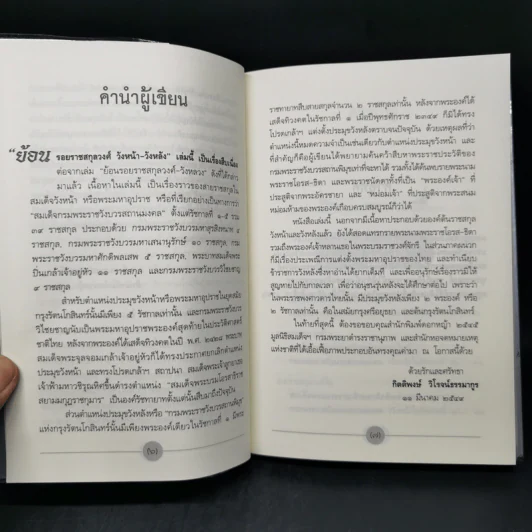 คำนำผู้เขียน
"ย้อน รอยราชสกุลวงศ์ วังหน้า-วังหลัง" เล่มนี้ เป็นเรื่องสืบเนื่อง
ต่อจากเล่ม "ย้อนรอยราชสกุลวงศ์-วังหลวง" ดังที่ได้กล่าว
มาแล้ว เนื้อหาในเล่มนี้ เป็นเรื่องราวของสายราชสกุลใน
สมเด็จวังหน้า หรือพระมหาอุปราช หรือที่เรียกอย่างเป็นทางการว่า
"สมเด็จกรมพระราชวังบวรสถานมงคล" ตั้งแต่รัชกาลที่ ๑-๕ รวม
ราชสกุล ประกอบด้วย กรมพระราชวังบวรมหาสุรสิงหนาท
ราชสกุล, กรมพระราชวังบวรมหาเสนานุรักษ์ ๑๐ ราชสกุล, กรม
พระราชวังบวรมหาศักดิพลเสพ ๕ ราชสกุล, พระบาทสมเด็จพระ
ปิ่นเกล้าเจ้าอยู่หัว ๑๑ ราชสกุล และกรมพระราชวังบวรวิไชยชาญ
๙ ราชสกุล
สำหรับตำแหน่งประมุขวังหน้าหรือพระมหาอุปราชในยุคสมัย
กรุงรัตนโกสินทร์นี้ มีเพียง ๕ รัชกาลเท่านั้น และกรมพระราชวังบวร
วิไชยชาญนับเป็นพระมหาอุปราชพระองค์สุดท้ายในประวัติศาสตร์
ชาติไทย หลังจากพระองค์ได้เสด็จทิวงคตในปี พ.ศ. ๒๔๒๘ พระบาท
สมเด็จพระจุลจอมเกล้าเจ้าอยู่หัวก็ได้ทรงประกาศยกเลิกตำแหน่ง
ประมุขวังหน้า และทรงโปรดเกล้าฯ สถาปนา สมเด็จพระเจ้าลูกยาเธอ
เจ้าฟ้ามหาวชิรุณหิศขึ้นดำรงตำแหน่ง "สมเด็จพระบรมโอรสาธิราช
สยามมกุฎราชกุมาร" เป็นองค์รัชทายาทตั้งแต่นั้นสืบมาถึงปัจจุบัน
ส่วนตำแหน่งประมุขวังหลังหรือ "กรมพระราชวังบวรสถานพิมุข"
แห่งกรุงรัตนโกสินทร์นั้นมีเพียงพระองค์เดียวในรัชกาลที่ ๑ มีพระ
(๖)
ราชทายาทสืบสายสกุลจำนวน ๒ ราชสกุลเท่านั้น หลังจากพระองค์ได้
เสด็จทิวงคตในรัชกาลที่ ๑ เมื่อปีพุทธศักราช ๒๓๔๙ ก็มิได้ทรง
โปรดเกล้าฯ แต่งตั้งประมุขวังหลังตราบจนปัจจุบัน ด้วยเหตุผลที่ว่า
ตำแหน่งนี้หมดความจำเป็นเช่นเดียวกับตำแหน่งประมุขวังหน้า และ
ที่สำคัญก็คือผู้เขียนได้พยายามค้นคว้าสืบหาพระราชประวัติของ
กรมพระราชวังบวรสถานพิมุขเท่าที่จะหาได้ รวมทั้งได้ค้นพบรายพระนาม
พระราชโอรส-ธิดา และพระราชนัดดาทั้งที่เป็น "พระองค์เจ้า"
ที่ประสูติจากพระอัครชายา และ "หม่อมเจ้า" ที่ประสูติจากพระสนม
หม่อมห้ามของพระองค์เกือบครบสมบูรณ์ก็ว่าได้
หนังสือเล่มนี้ นอกจากมีเนื้อหาประกอบด้วยองค์ต้นราชสกุล
วังหน้าและวังหลังแล้ว ยังได้สอดแทรกรายพระนามพระราชโอรส-ธิดา
รวมถึงพระองค์เจ้าหลานเธอในพระบรมราชวงศ์จักรี ในส่วนภาคผนวก
ก็มีเรื่องประเพณีการแต่งตั้งพระมหาอุปราชของไทย และทำเนียบ
ข้าราชการวังหลังซึ่งหาอ่านได้ยากเต็มที และเพื่ออนุรักษ์เรื่องราวมิให้
สูญหายไปกับกาลเวลา เพื่อว่าอนุชนรุ่นหลังจะได้ศึกษาต่อไป เพราะว่า
ในพระราชพงศาวดารไทยนั้น มีประมุขวังหลังเพียง ๒ พระองค์ หรือ
๒ รัชกาลเท่านั้น คือในสมัยกรุงศรีอยุธยา และต้นกรุงรัตนโกสินทร์
ในท้ายที่สุดนี้ ต้องขอขอบคุณสำนักพิมพ์ดอกหญ้า ๒๕๔๕
มูลนิธิสมเด็จฯ กรมพระยาดำรงราชานุภาพ และสำนักหอจดหมายเหตุ
แห่งชาติที่ได้เอื้อเฟื้อภาพประกอบอันทรงคุณค่ามา ณ โอกาสนี้ด้วย
ด้วยรักและศรัทธา
กิตติพงษ์ วิโรจน์ธรรมากูร
๑๑ มีนาคม ๒๕๔๙
(๗)